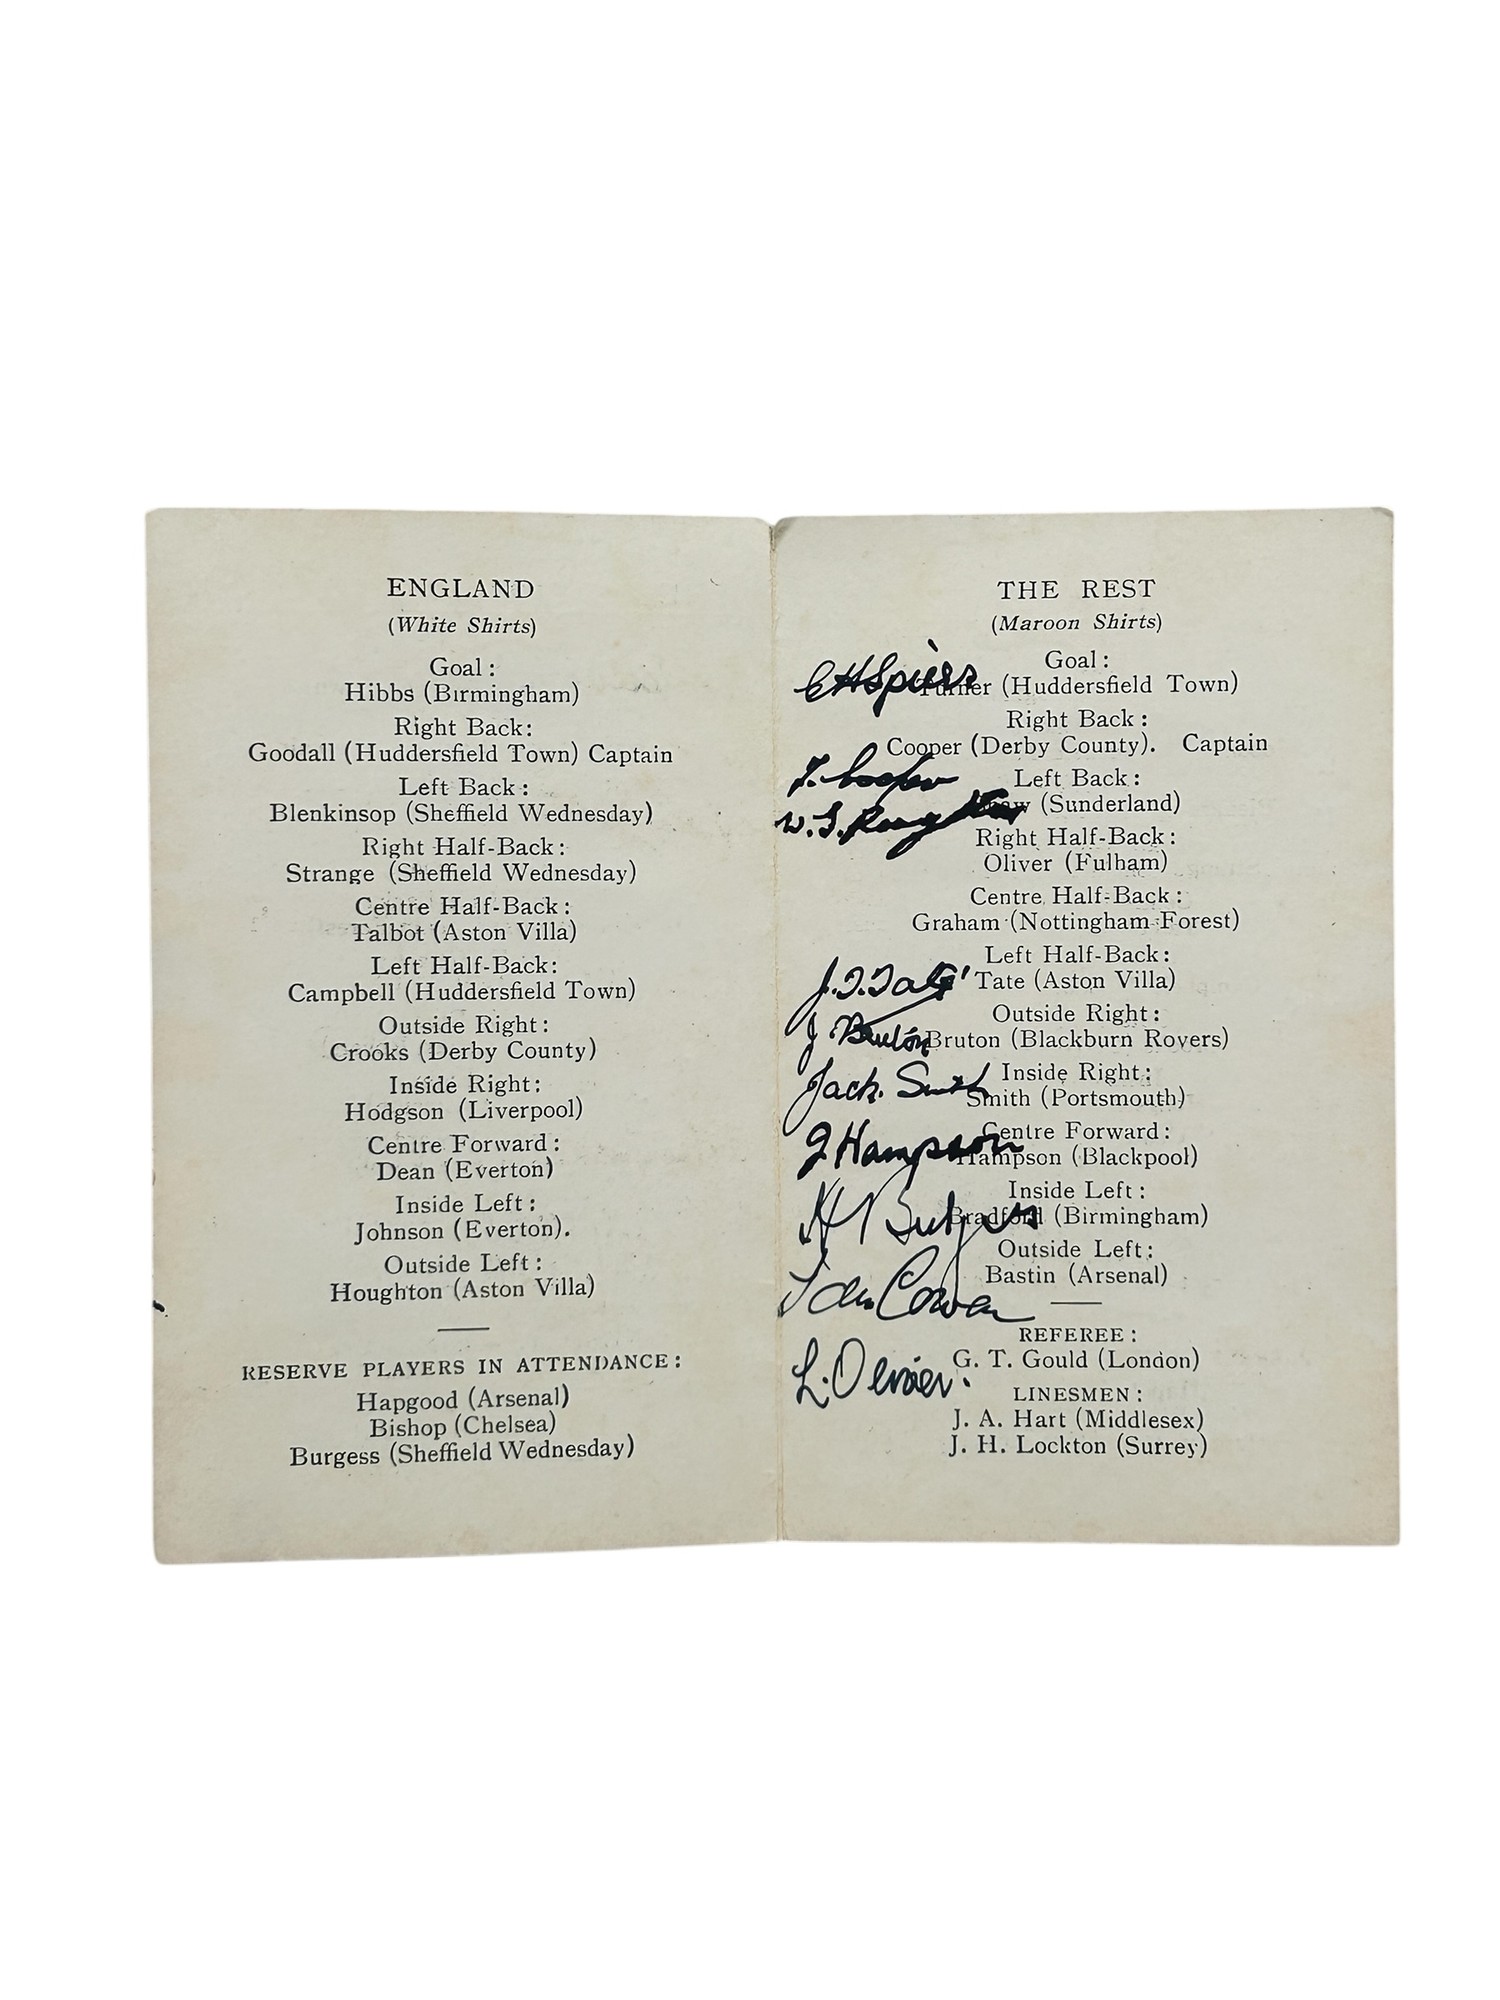 ENGLAND
(White Shirts)
Goal:
Hibbs (Birmingham)
Right Back:
Goodall (Huddersfield Town) Captain
Left Back:
Blenkinsop (Sheffield Wednesday)
Right Half-Back:
Strange (Sheffield Wednesday)
Centre Half-Back:
Talbot (Aston Villa)
Left Half-Back:
Campbell (Huddersfield Town)
Outside Right:
Crooks (Derby County)
Inside Right:
Hodgson (Liverpool)
Centre Forward:
Dean (Everton)
Inside Left:
Johnson (Everton).
Outside Left:
Houghton (Aston Villa)
RESERVE PLAYERS IN ATTENDANCE:
Hapgood (Arsenal)
Bishop (Chelsea)
Burgess (Sheffield Wednesday)
THE REST
(Maroon Shirts)
Goal:
C H Spiers
Turner (Huddersfield Town)
Right Back:
Cooper (Derby County). Captain
T. Cooper
Left Back:
(Sunderland)
W. G.
Right Half-Back:
Oliver (Fulham)
Centre Half-Back:
Graham (Nottingham Forest)
Left Half-Back:
J. T. Tate
Tate (Aston Villa)
Outside Right:
J Bruton
Bruton (Blackburn Rovers)
Inside Right:
Jack. Smith
Smith (Portsmouth)
Centre Forward:
J Hampson
Hampson (Blackpool)
Inside Left:
H Burgess
Bradford (Birmingham)
Outside Left:
Bastin (Arsenal)
Cowan
REFEREE:
G. T. Gould (London)
L. Oliver.
LINESMEN:
J. A. Hart (Middlesex)
J. H. Lockton (Surrey)